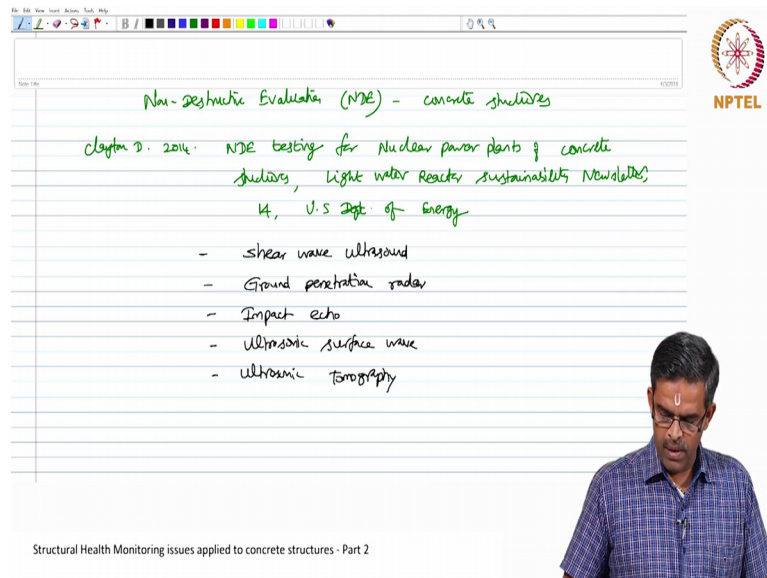 File Edit View Insert Actions Tools Help
B I
Note Title
4/3/2018
NPTEL
Non-Destructive Evaluation (NDE) - concrete structures
Clayton D. 2014. NDE testing for Nuclear power plants of concrete
structures, Light water Reactor sustainability Newsletter,
14, U.S Dept. of Energy
- shear wave ultrasound
- Ground penetration radar
- Impact echo
- ultrasonic surface wave
- ultrasonic tomography
Structural Health Monitoring issues applied to concrete structures - Part 2